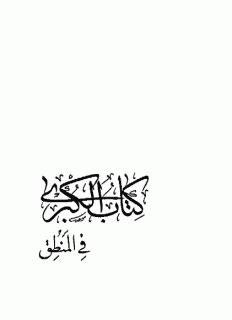 كِتَابُ الكُبْرَى
فِي المَنْطِق